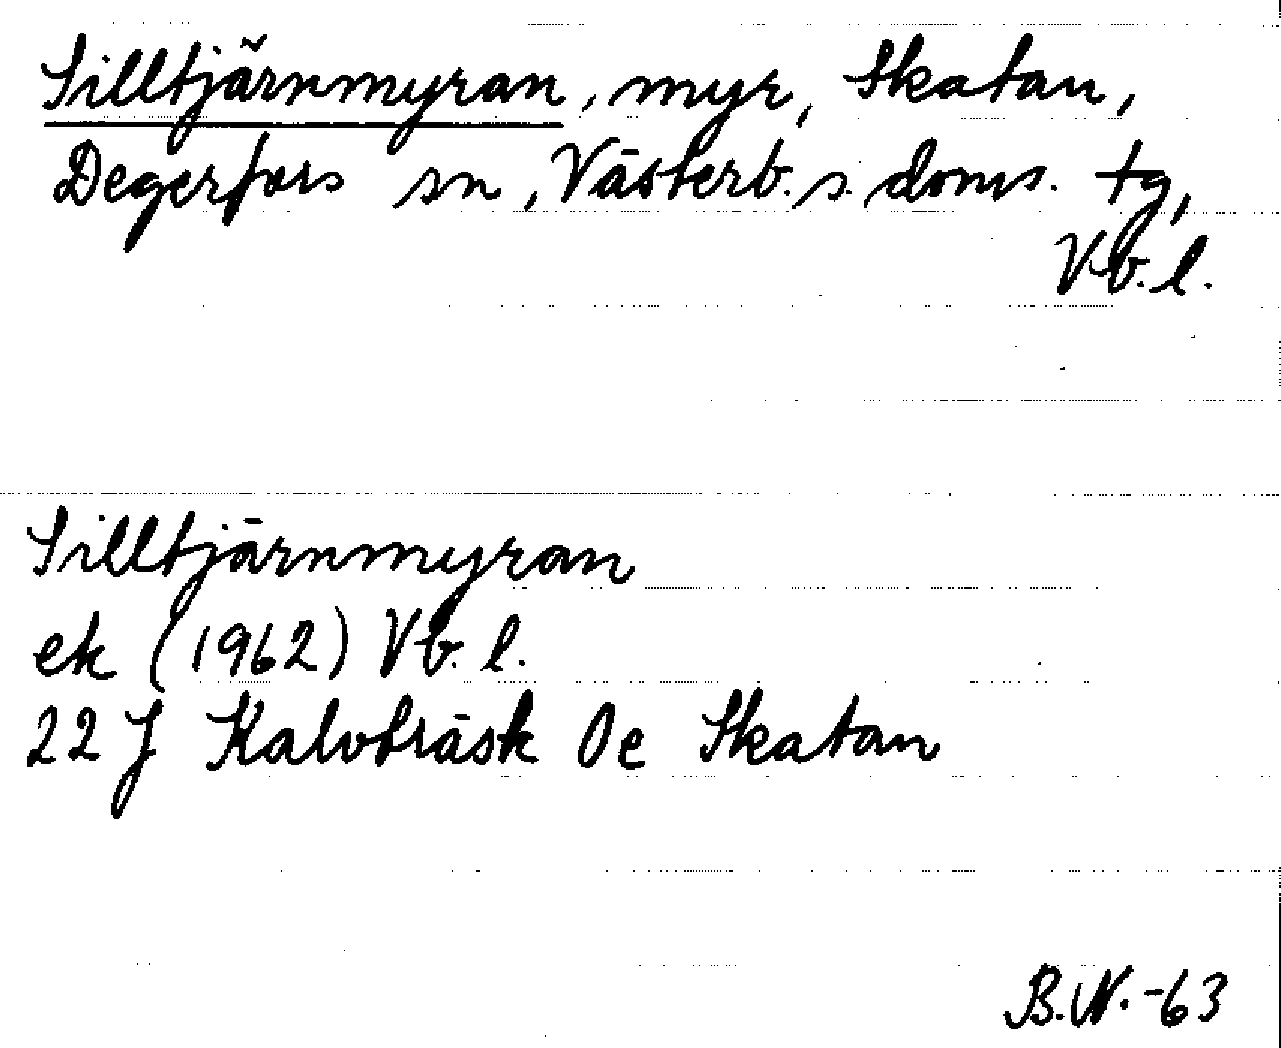 Silltjärnmyran, myr, Skatan,
Degerfors sn, Västerb. s. doms. tg,
Vb. l.
Silltjärnmyran
ek (1962) Vb. l.
22 J Kalvträsk 0e Skatan
B.N.-63